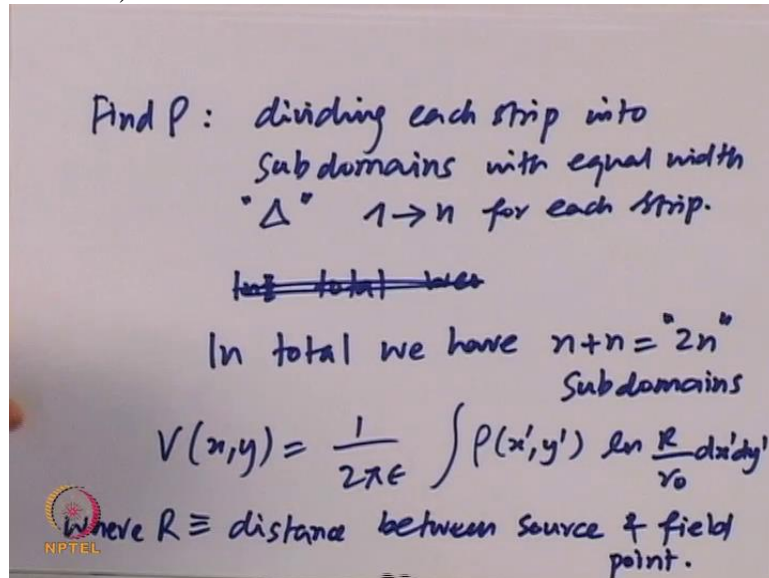 Find ρ : dividing each strip into
subdomains with equal width
"Δ" 1→n for each strip.
In total we have n+n = "2n"
subdomains
V(x,y) = 1/2πϵ ∫ρ(x',y') ln R/r₀ dx'dy'
where R ≡ distance between source & field
point.
NPTEL